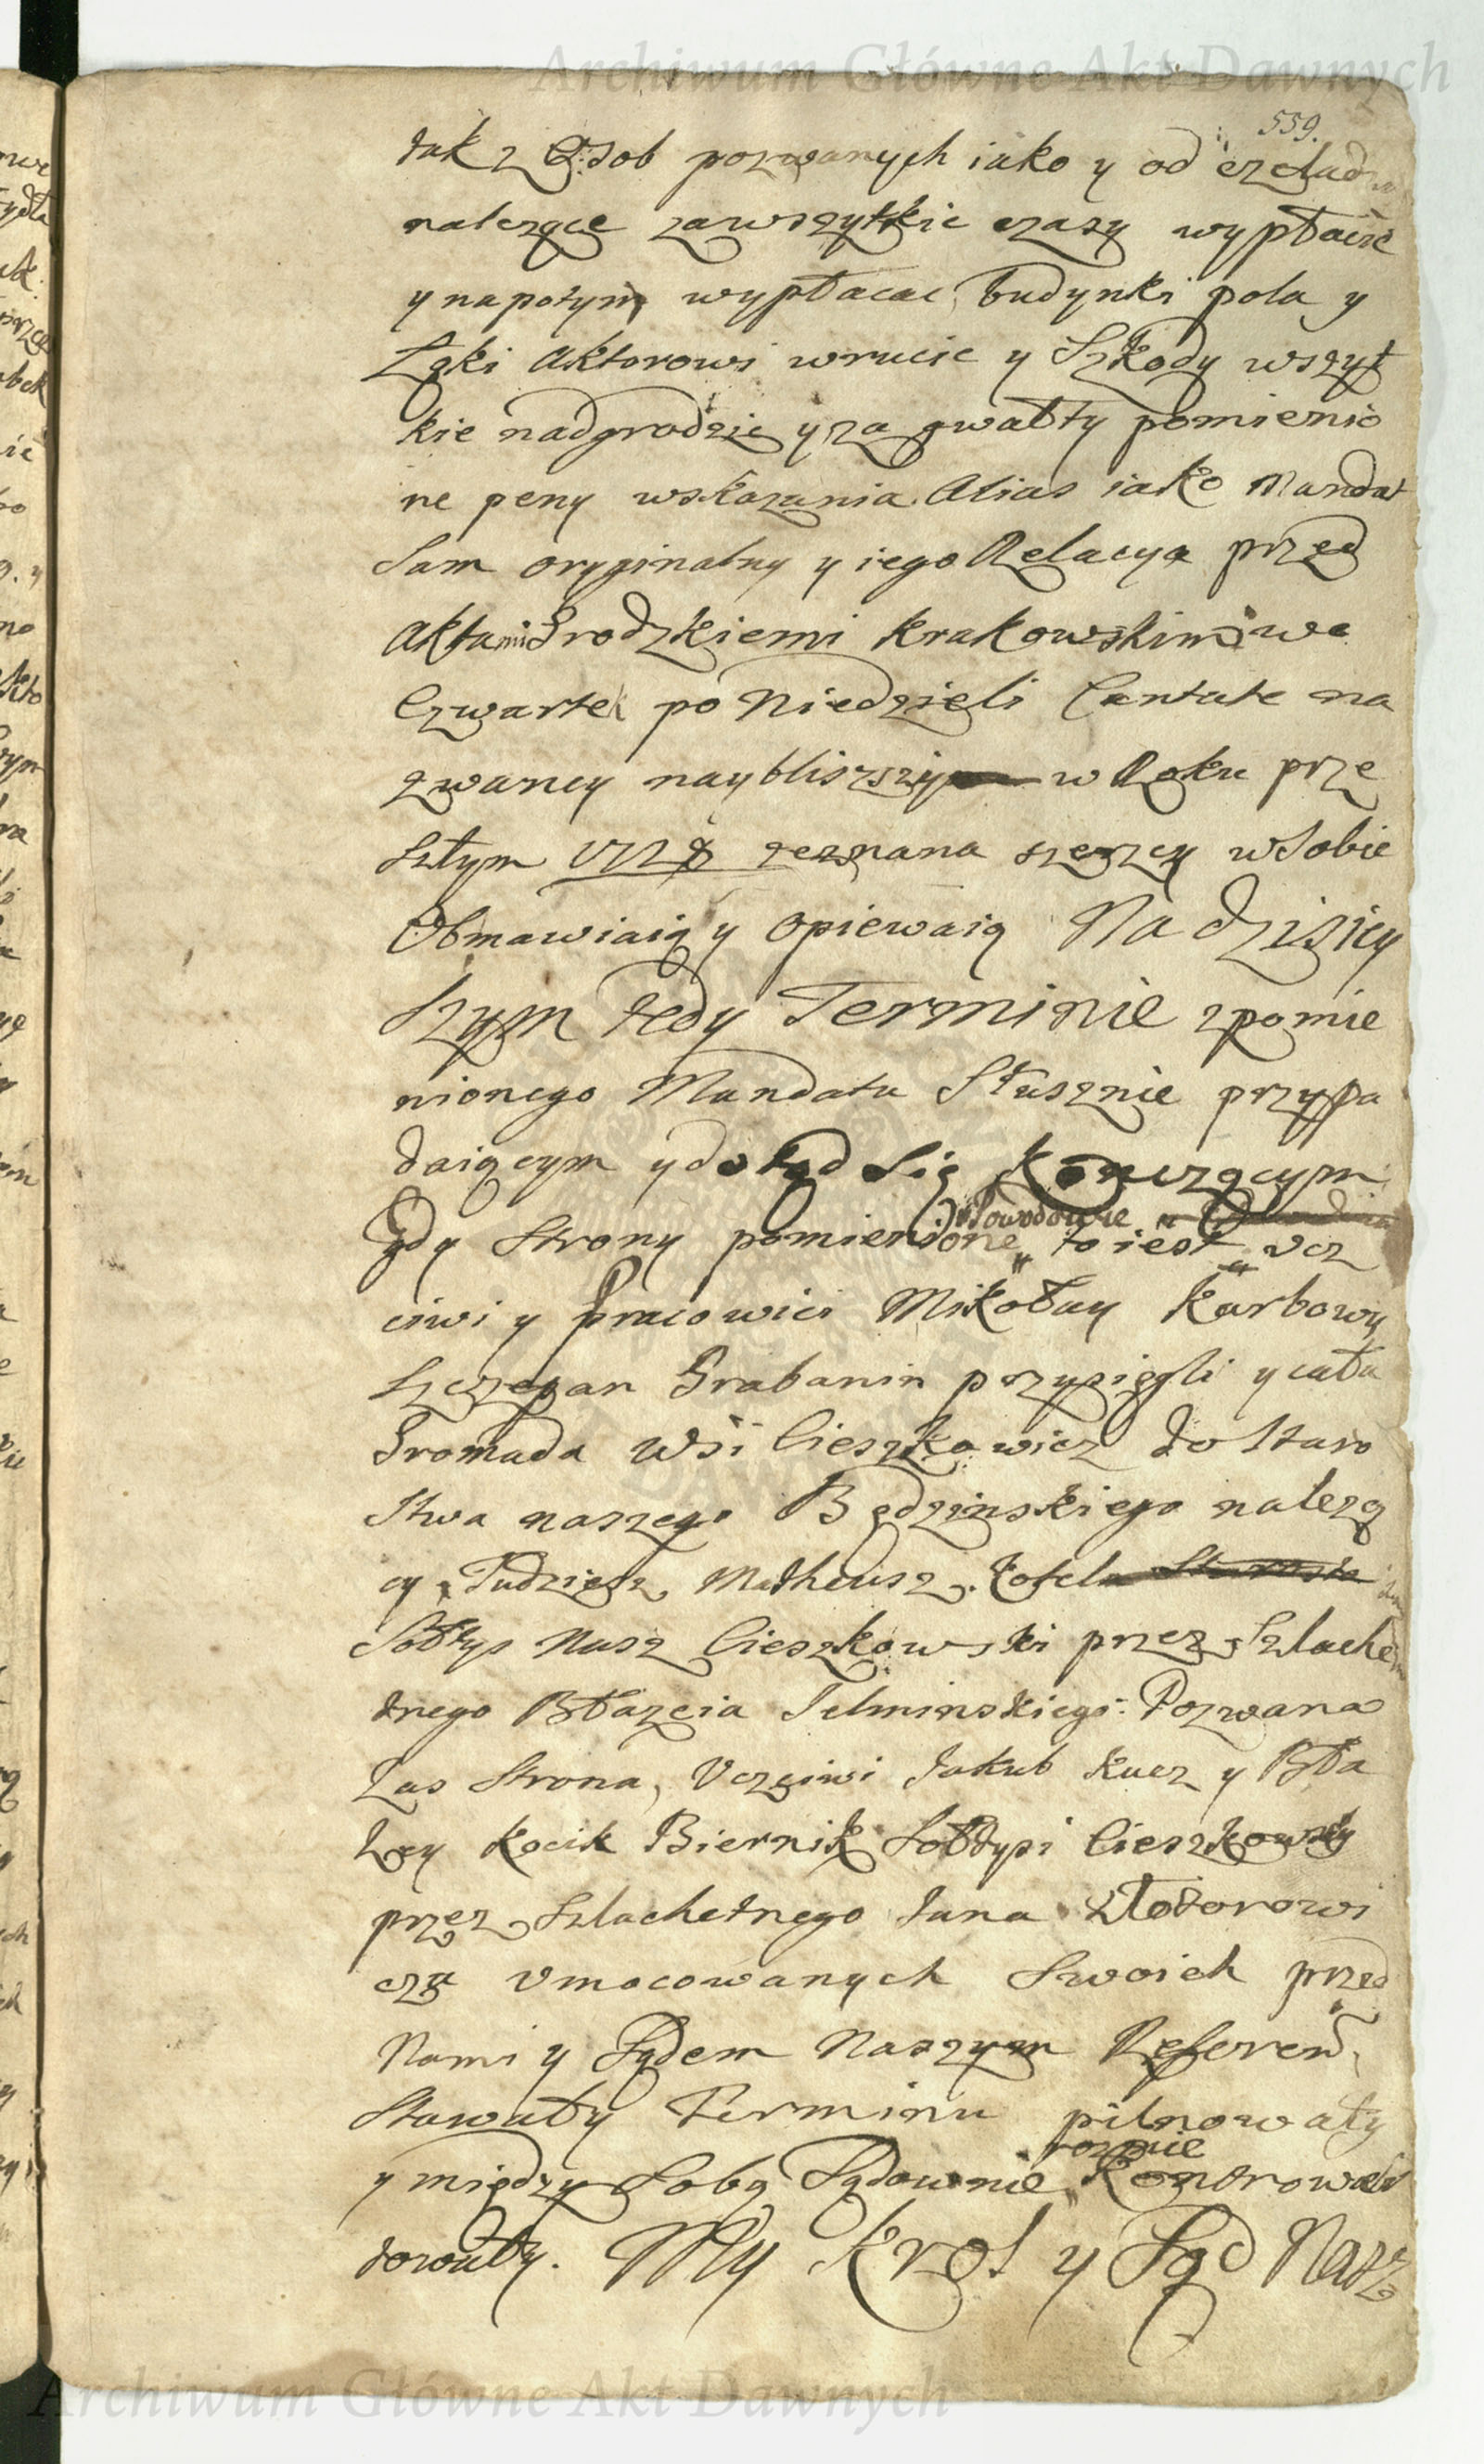 Archiwum Główne Akt Dawnych
559.
tak z Osob pozwanych iako y od czeladzi
nalezące zawszytkie czasy wypłacic
y napotym wypłacac, budynki pola y
Łąki Aktorowi wrucic y Szkody wszyt
kie nadgrodzic y za gwałty pomienio
ne peny wskazania. Alias iako Mandat
Sam oryginalny y iego Relacya przed
Aktami Grodzkiemi Krakowskimi we
Czwartek po Niedzieli Cantate na
zwaney naybliszszy w Roku prze
szłym zeznana szerzey w Sobie
Obmawiaią y opiewaią Na dzisiey
Szym tedy Terminie z pomie
nionego Mandatu Słusznie przypa
daiącym y dotąd Się Konczącym
Powodowie
Gdy Strony pomienione to iest Ucz
ciwi y pracowici Mikołay Karbowy
Szczepan Grabanin przysięgli y cała
Gromada Wsi Cieszkowicz do Staro
stwa naszego Będzinskiego nalezą
cy, Tudziesz Matheusz Kotela
Sołtys Nasz Cieszkowski przez Szlache
tnego Błazeia Telminskiego. Pozwana
Zas Strona, Uczciwi Jakub Kucz y Bła
Zey Kocik Biernik Sołtysi Cieszkowscy
przez Szlachetnego Jana Złotorowi
cza Umocowanych Swoich przed
Nami y Sądem Naszym Referen.
Stawały Terminu pilnowały
roznie
y między Sobą Sądownie Kontrower
towały. My Krol y Sąd Nasz
Archiwum Główne Akt Dawnych